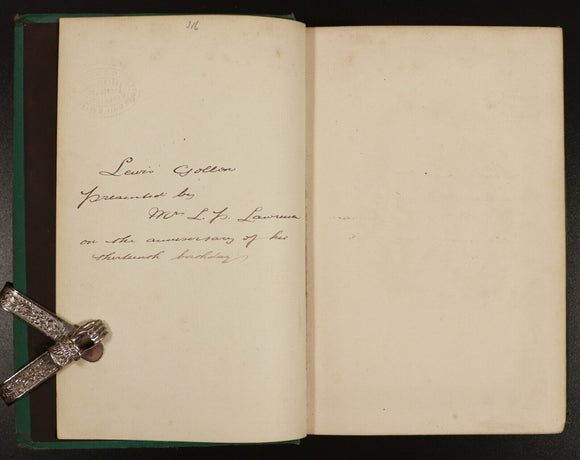 3/6
Lewis
presented by
Mr L. P. Lawrence
on the anniversary of his
thirteenth birthday